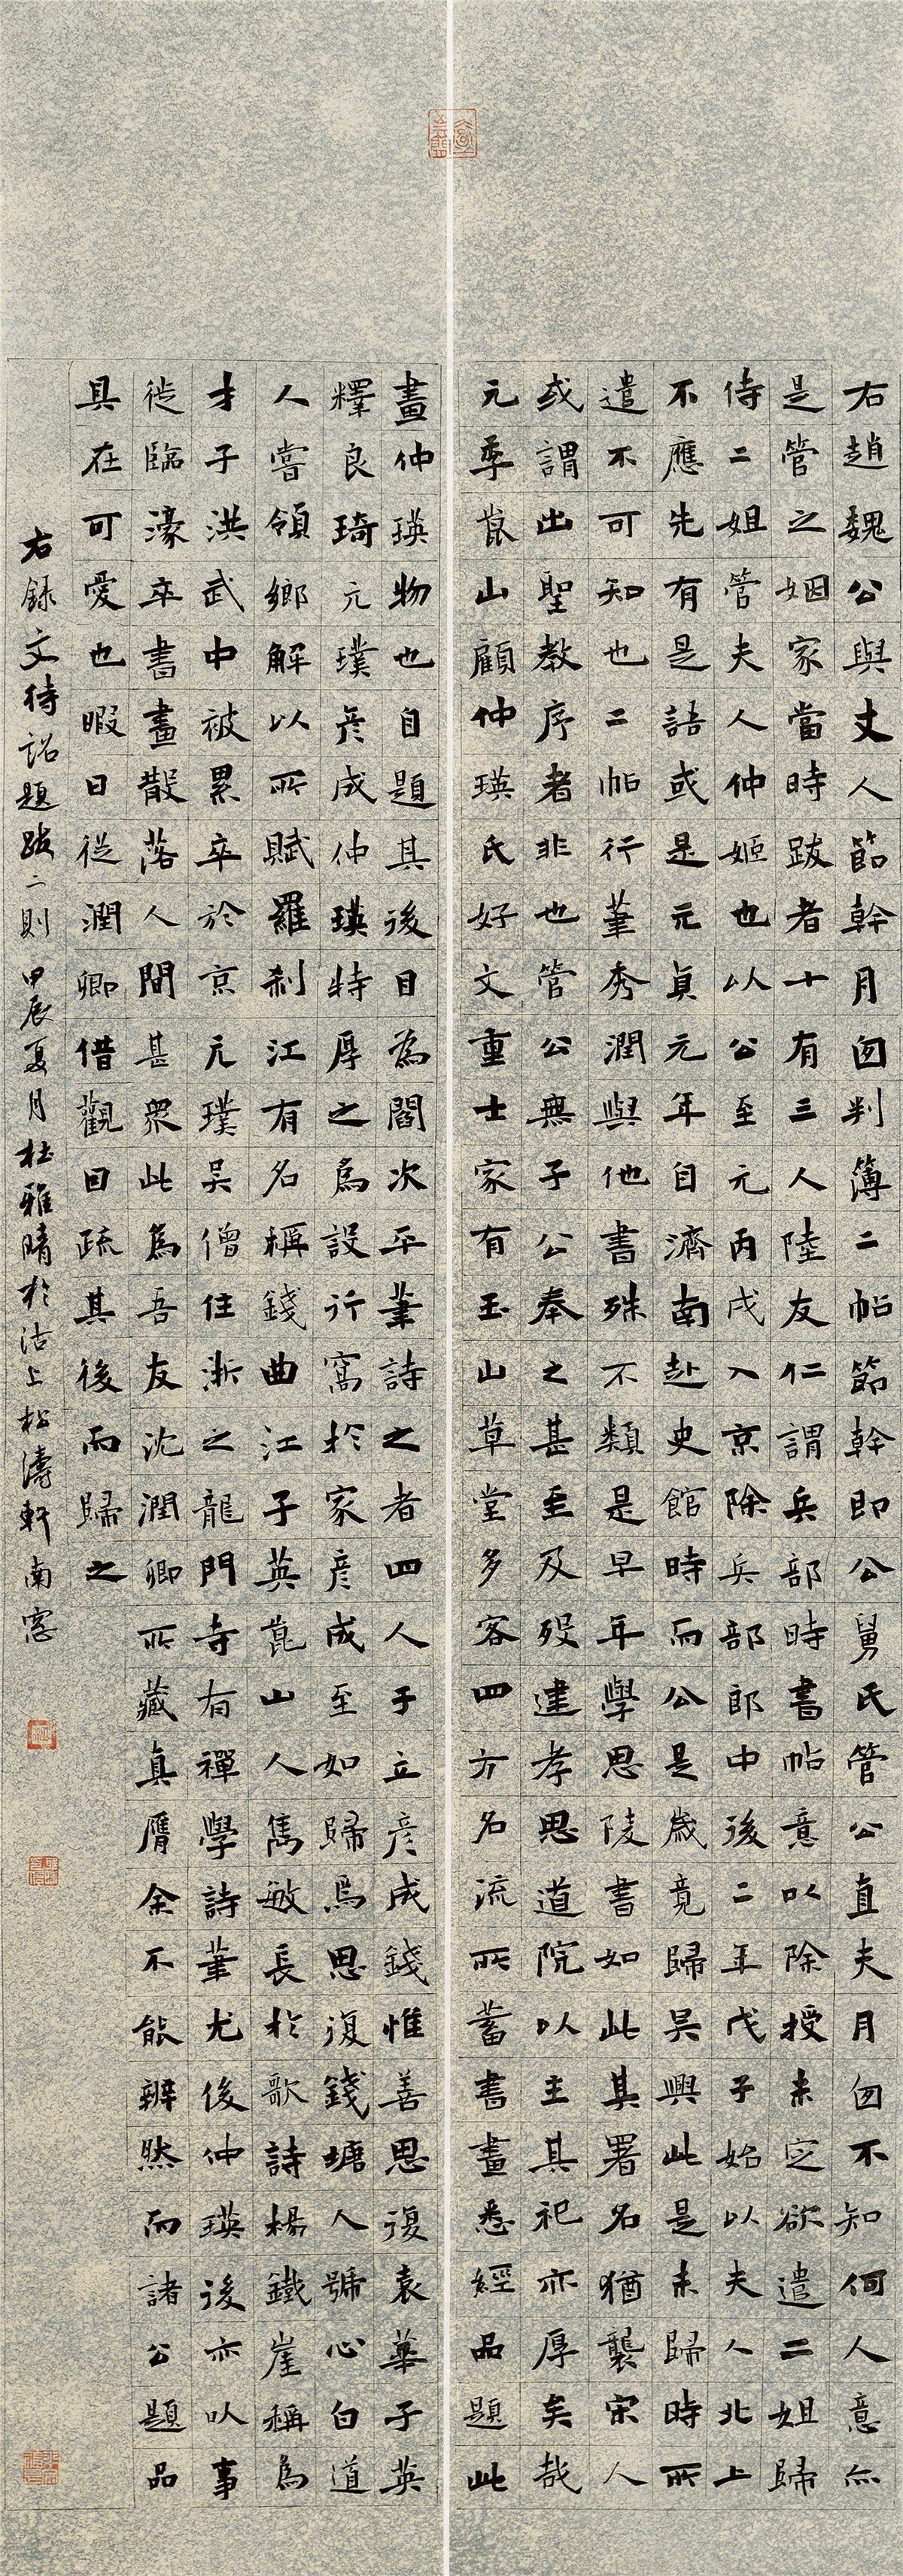 右趙魏公與丈人節幹月囱判簿二帖節幹即公舅氏管公直夫月囱不知何人意亦
是管之姻家當時跋者十有三人陸友仁謂兵部時書帖意以除授未定欲遣二姐歸
侍二姐管夫人仲姬也以公至元丙戌入京除兵部郎中後二年戊子始以夫人北上
不應先有是語或是元貞元年自濟南赴史館時而公是歲竟歸吳興此是未歸時所
遣不可知也二帖行筆秀潤與他書殊不類是早年學思陵書如此其署名猶襲宋人
或謂出聖教序者非也管公無子公奉之甚至及歿建孝思道院以主其祀亦厚矣哉
元季崑山顧仲瑛氏好文重士家有玉山草堂多客四方名流所蓄書畫悉經品題此
畫仲瑛物也自題其後目為閻次平筆詩之者四人于立彥成錢惟善思復袁華子英
釋良琦元璞彥成仲瑛特厚之為設行窩於家彥成至如歸焉思復錢塘人號心白道
人嘗領鄉解以所賦羅剎江有名稱錢曲江子英崑山人雋敏長於歌詩楊鐵崖稱為
才子洪武中被累卒於京元璞吳僧住浙之龍門寺有禪學詩筆尤俊仲瑛後亦以事
徙臨濠卒書畫散落人間甚衆此為吾友沈潤卿所藏真贋余不能辨然而諸公題品
具在可愛也暇日從潤卿借觀因疏其後而歸之
右録文待詔題跋二則 甲辰夏月杜雅晴於沽上松濤軒南窗